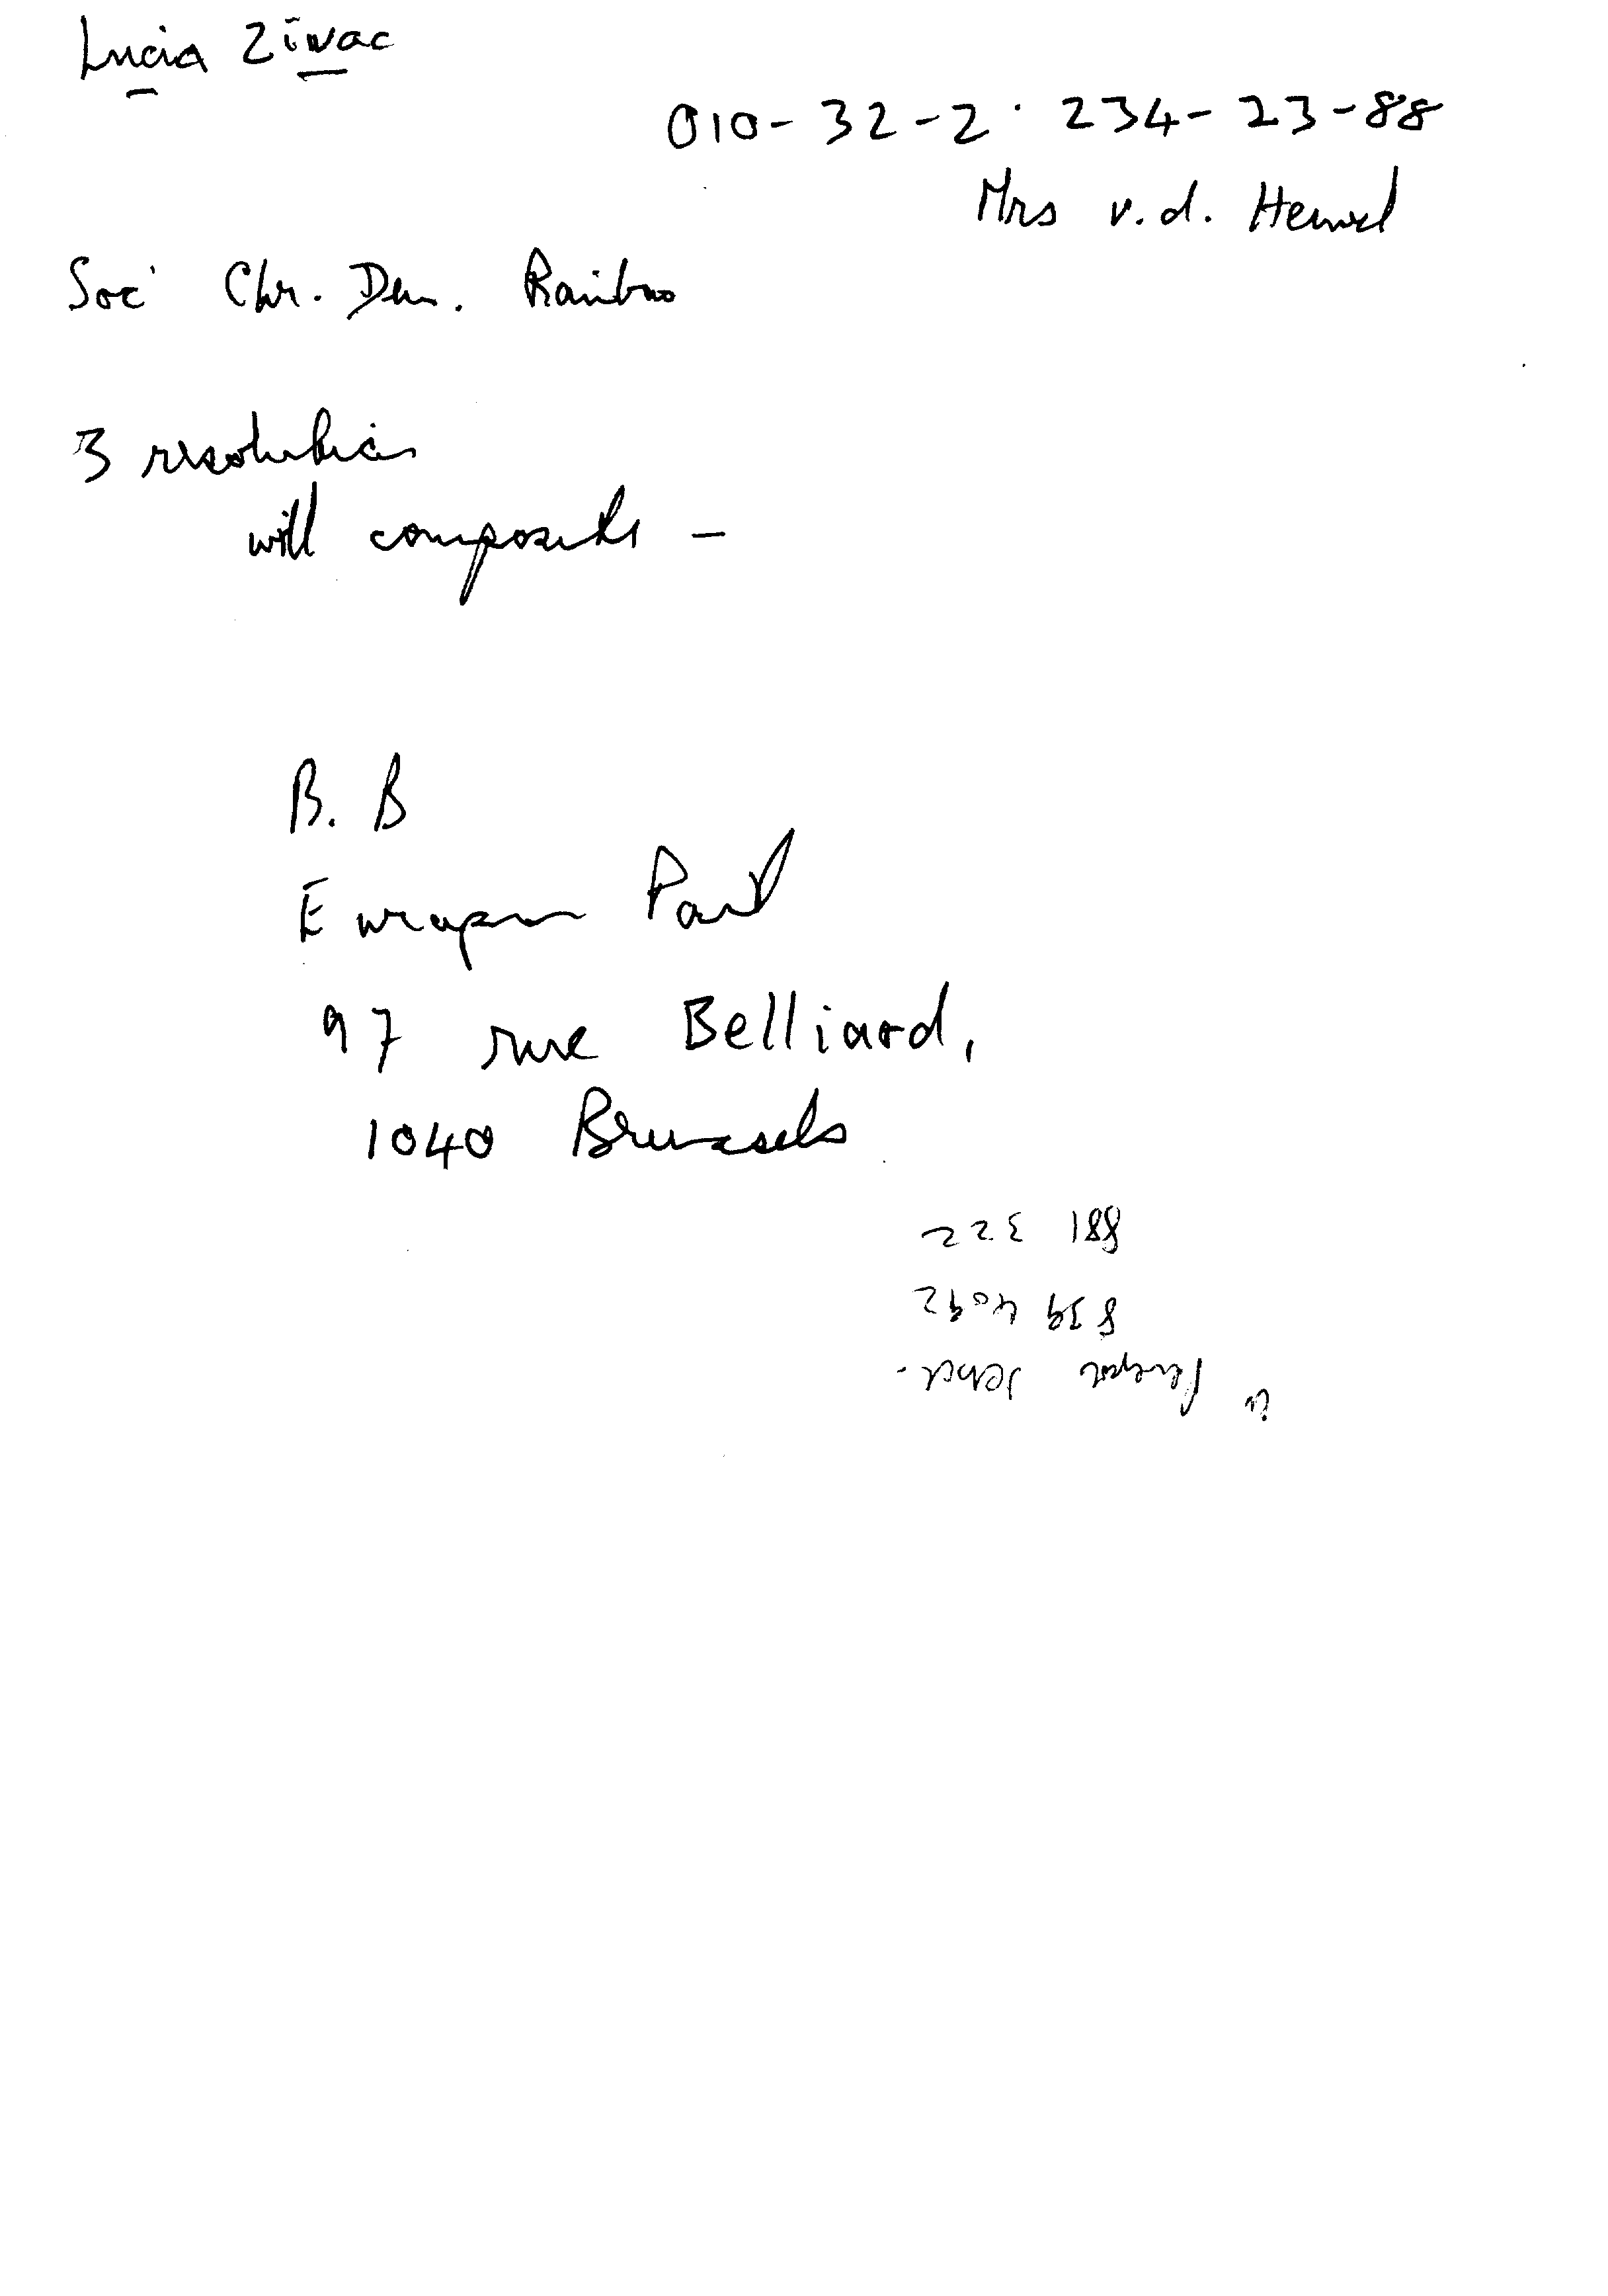 Lucia Zivac
010-32-2· 234-23-88
Mrs v.d. Heuvel
Soc Chr. Dem. Rainbow
3 resolutions
will composite -
B. B
European Parl
97 rue Belliard,
1040 Brussels
839 4092
881 322